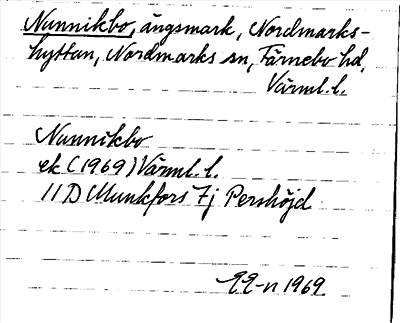 Nunnikbo, ängsmark, Nordmarks-
hyttan, Nordmarks sn, Färnebo hd,
Värml. l.
Nunnikbo
ek (1969) Värml. l.
11 D Munkfors 7j Pershöjd
1969